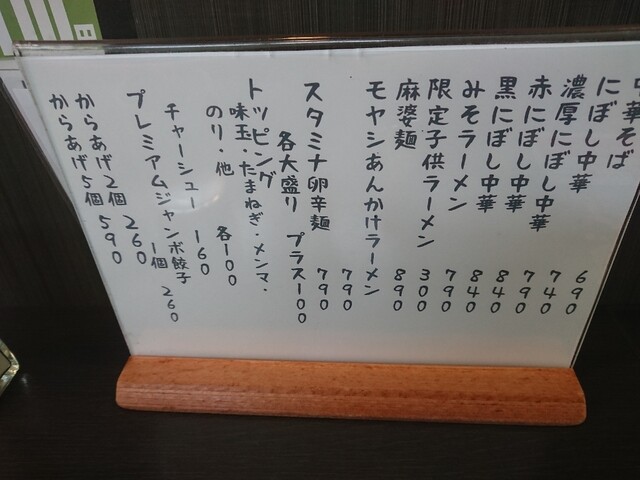 中華そば 690
にぼし中華 740
濃厚にぼし中華 790
赤にぼし中華 840
黒にぼし中華 840
みそラーメン 790
限定子供ラーメン 300
麻婆麺 890
モヤシあんかけラーメン 790
スタミナ卵辛麺 790
各大盛り プラス100
トッピング
味玉・たまねぎ・メンマ・
のり・他 各100
チャーシュー 160
プレミアムジャンボ餃子
1個 260
からあげ2個 260
からあげ5個 590